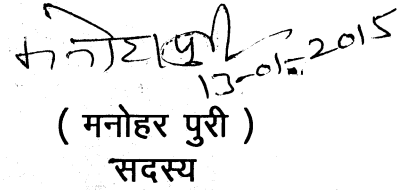 मनोहर पुरी
13-01-2015
( मनोहर पुरी )
सदस्य